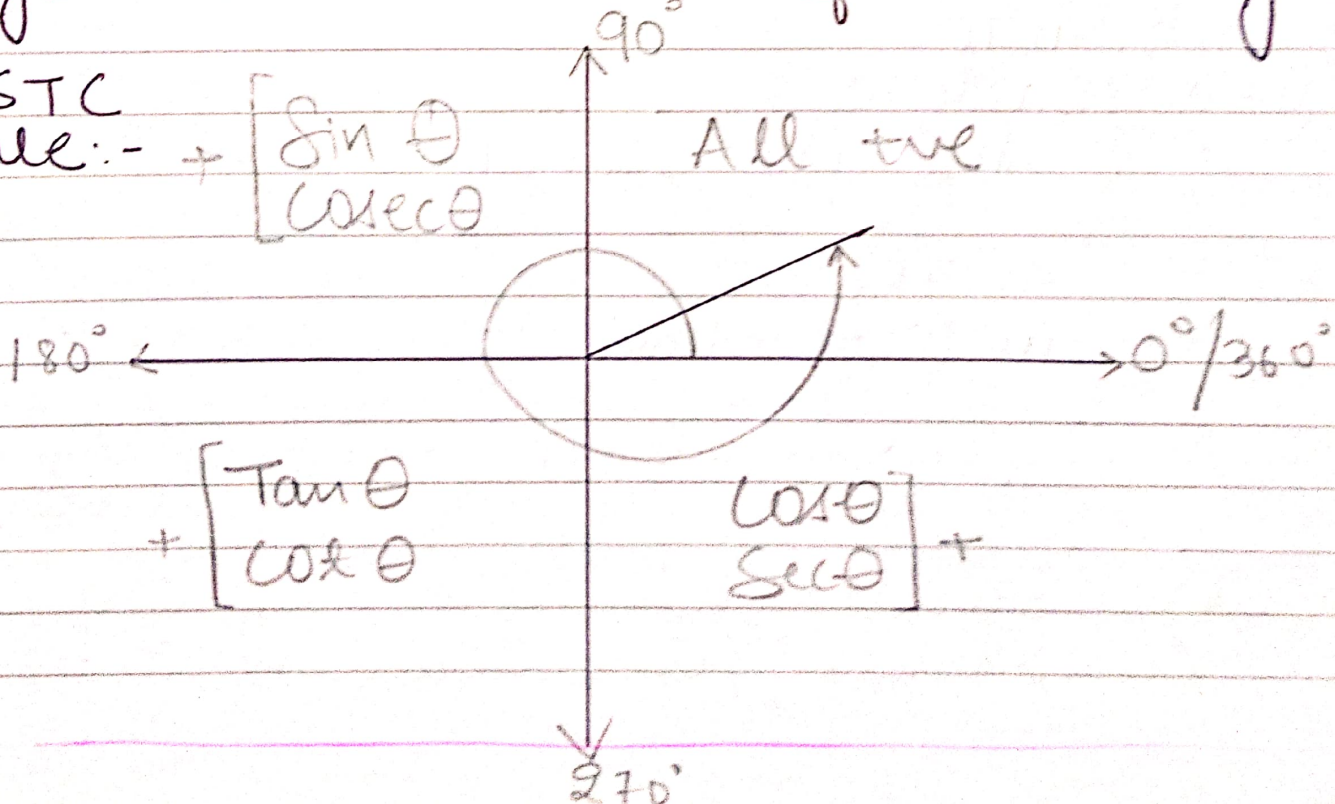 90°
STC
ule:- + [ Sin θ
Cosecθ
All +ve
180°
0°/360°
+ [ Tan θ
Cot θ
Cosθ
Secθ ] +
270°